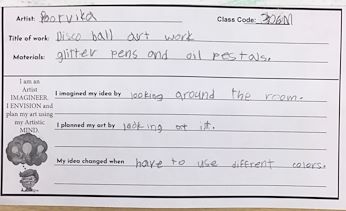 Artist: Poorvika Class Code: 306N
Title of work: Disco ball art work
Materials: glitter pens and oil pestals.
I am an
Artist
IMAGINEER.
I ENVISION and
plan my art using
my Artistic
MIND.
I imagined my idea by looking around the room.
I planned my art by looking at it.
My idea changed when have to use diffrent colors.